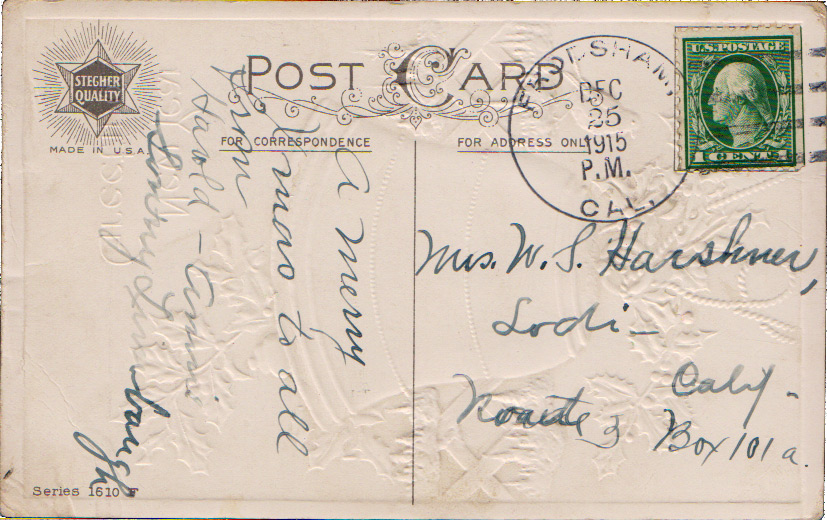 STEGHER
QUALITY
MADE IN U.S.A.
POST CARD
FOR CORRESPONDENCE
FOR ADDRESS ONLY
DEC
25
1915
P.M.
CAL.
U.S. POSTAGE
1 CENT 1
A Merry
Xmas to all
From
Harold -
Mrs. W. S. Harshner,
Lodi -
Calif -
Route 3 Box 101a.
Series 1610 F